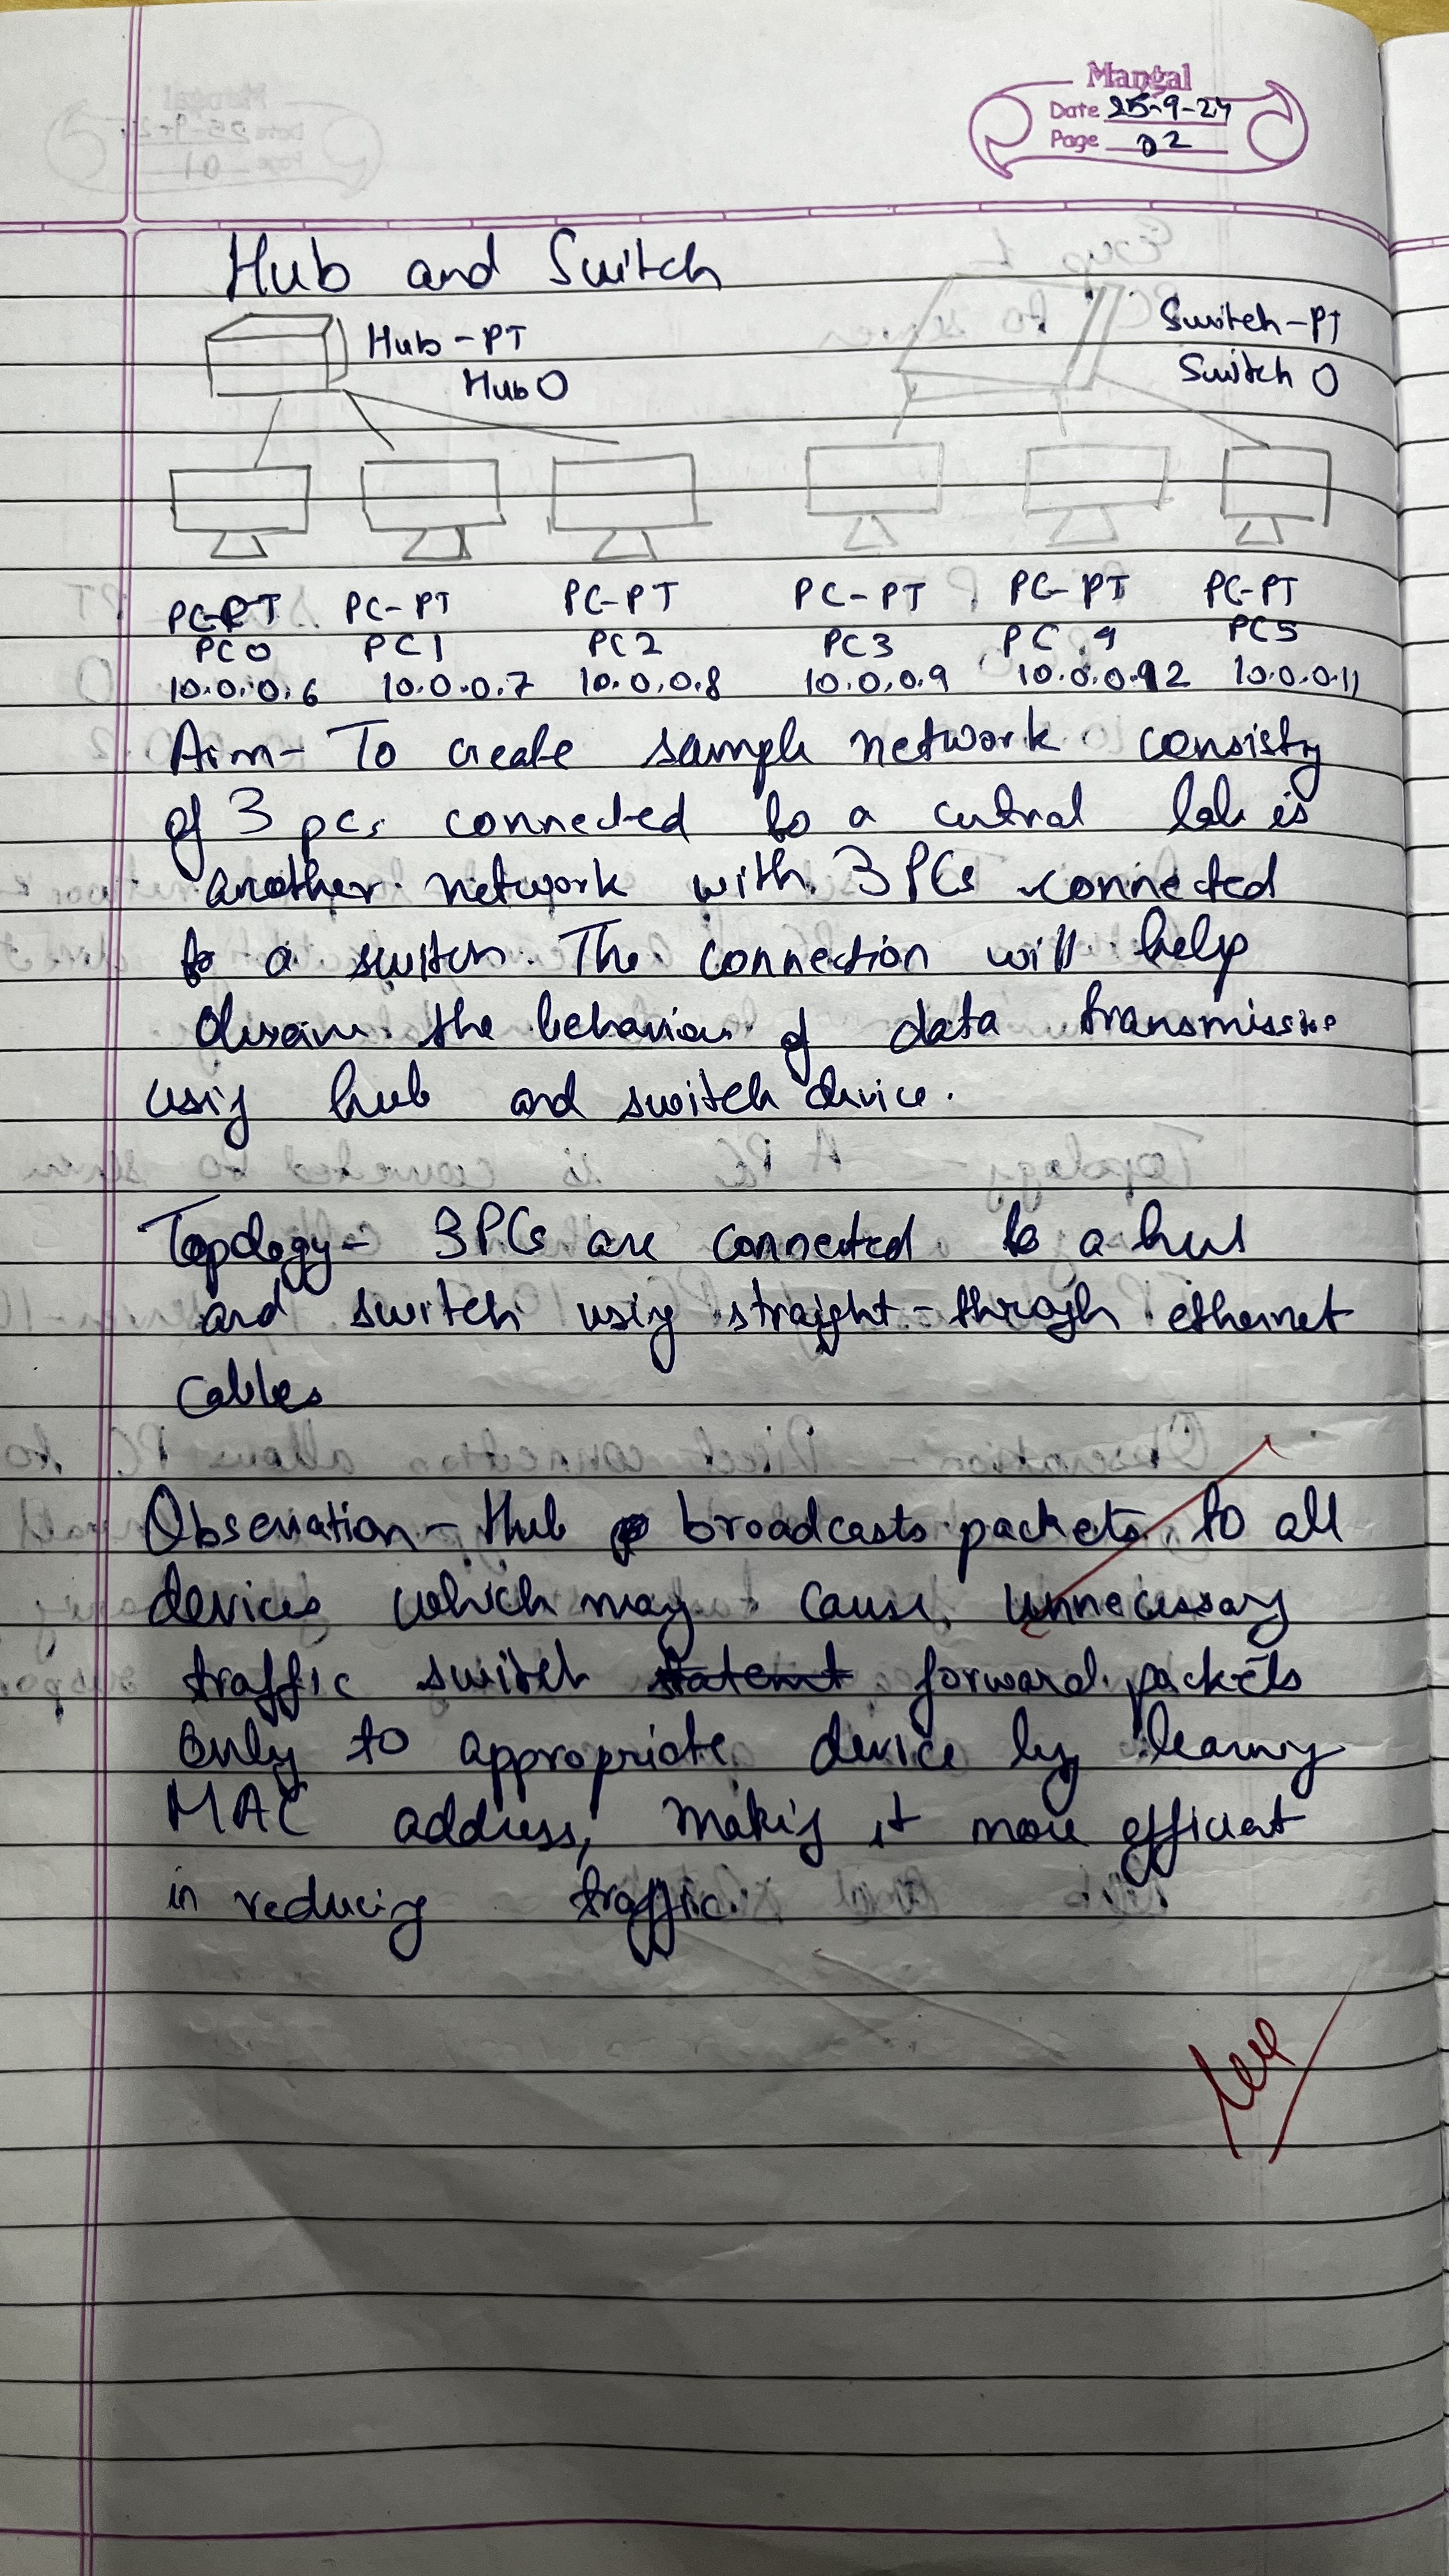 Mangal
Date 25-9-24
Page 02
Hub and Switch
Hub-PT
Hub0
Switch-PT
Switch 0
PC-PT PC-PT PC-PT PC-PT PC-PT PC-PT
PC0 PC1 PC2 PC3 PC 4 PC5
10.0.0.6 10.0.0.7 10.0.0.8 10.0.0.9 10.0.0.11
Aim- To create sample network
of 3 pcs connected to a
another network with 3PCs connected
to a switch. The connection will help
the of data
using hub and switch device.
Topology- 3PCs are connected to a hub
and switch using straight-through ethernet
cables
Observation- Hub broadcasts packets to all
devices which may cause unnecessary
traffic switch forward packets
only to appropriate device by
MAC address, making it more efficient
in reducing traffic.